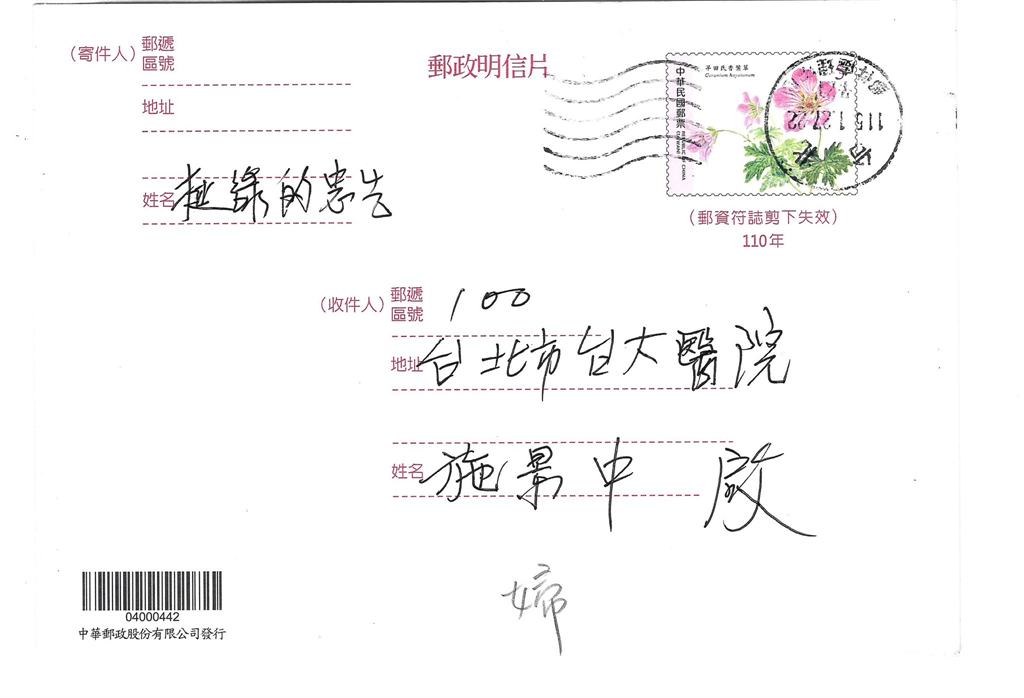 (寄件人)
郵遞
區號
地址
姓名 挺綠的忠告
郵政明信片
早田氏香葉草
Geranium hayatanum
中華民國郵票
REPUBLIC OF CHINA
115.1.27.22
(郵資符誌剪下失效)
110年
(收件人)
郵遞
區號 100
地址 台北市台大醫院
姓名 施景中 啟
婦
04000442
中華郵政股份有限公司發行